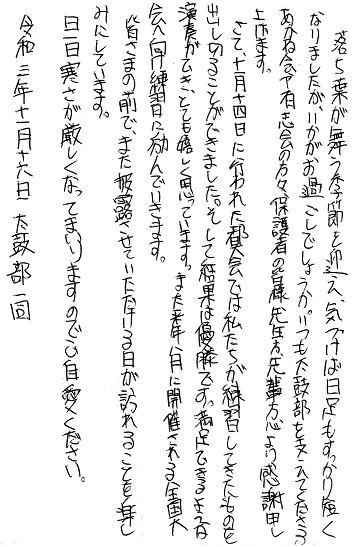 落ち葉が舞う季節を迎え、気づけば日足もすっかり短く
なりましたが、いかがお過ごしでしょうか。いつも太鼓部を支えてくださる
あかね会や有志会の方々、保護者の皆様、先生方、先輩方、心より感謝申し
上げます。
さて、十一月十四日に行われた都大会では私たちが練習してきたものを
出しきることができました。そして結果は優勝です。満足できるような
演奏ができ、とても嬉しく思っています。また来年八月に開催される全国大
会へ向け練習に励んでいきます。
皆さまの前で、また披露させていただける日が訪れることを楽し
みにしています。
日一日寒さが厳しくなってまいりますのでご自愛ください。
令和三年十一月十六日 太鼓部一同